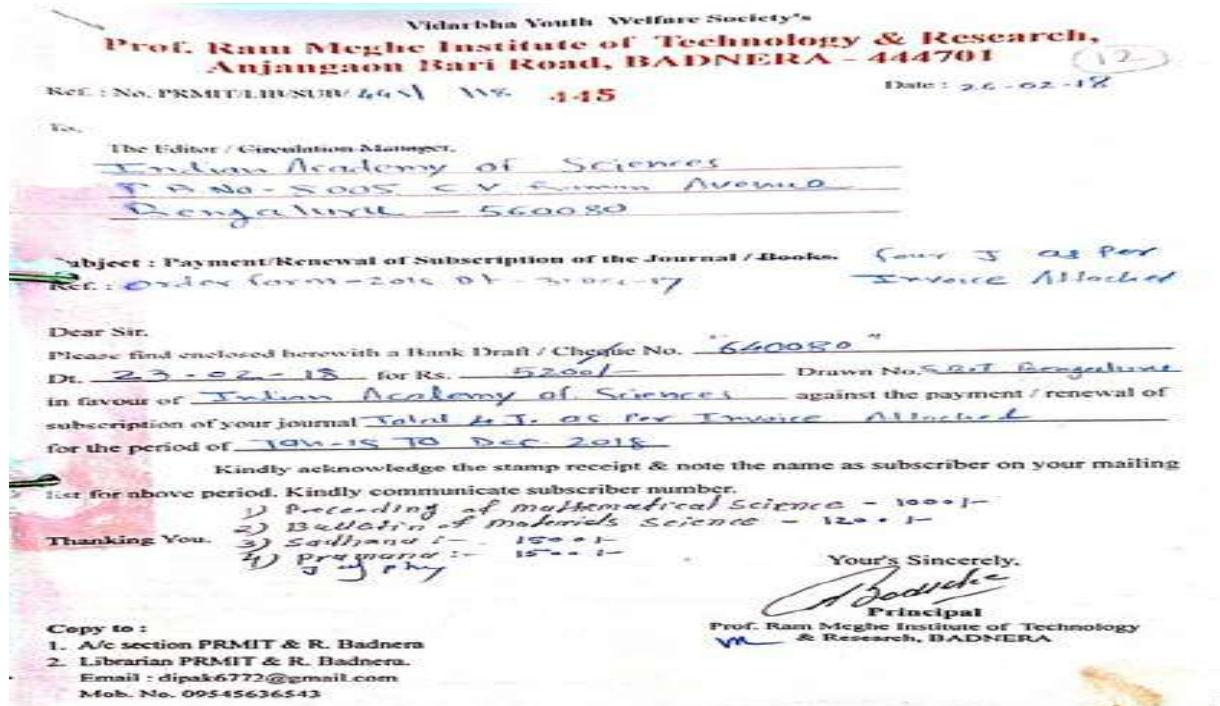 Vidarbha Youth Welfare Society's
Prof. Ram Meghe Institute of Technology & Research,
Anjangaon Bari Road, BADNERA - 444701
12
Ref. : No. PRMIT/LIB/SUB/ 118 445
Date : 26-02-18
To,
The Editor / Circulation Manager,
Indian Academy of Sciences
P B No - 8005 C V Raman Avenue
Bengaluru - 560080
Subject : Payment/Renewal of Subscription of the Journal / Books. Four J as Per
Ref. : Order form - Invoice Attached
Dear Sir,
Please find enclosed herewith a Bank Draft / Cheque No. "640080"
Dt. 23-02-18 for Rs. 5200/- Drawn No. Bengaluru
in favour of Indian Academy of Sciences against the payment / renewal of
subscription of your journal Total 4 J. as Per Invoice Attached
for the period of Jan-18 TO Dec 2018
Kindly acknowledge the stamp receipt & note the name as subscriber on your mailing
list for above period. Kindly communicate subscriber number.
1) Preceeding of mathematical Science - 1000/-
2) Bulletin of materials science - 1200/-
Thanking You. 3) Sadhana :- 1500/-
4) Pramana :- 1500/-
J of phy
Your's Sincerely,
Principal
Prof. Ram Meghe Institute of Technology
& Research, BADNERA
Copy to :
1. A/c section PRMIT & R. Badnera
2. Librarian PRMIT & R. Badnera.
Email : dipak6772@gmail.com
Mob. No. 09545636543